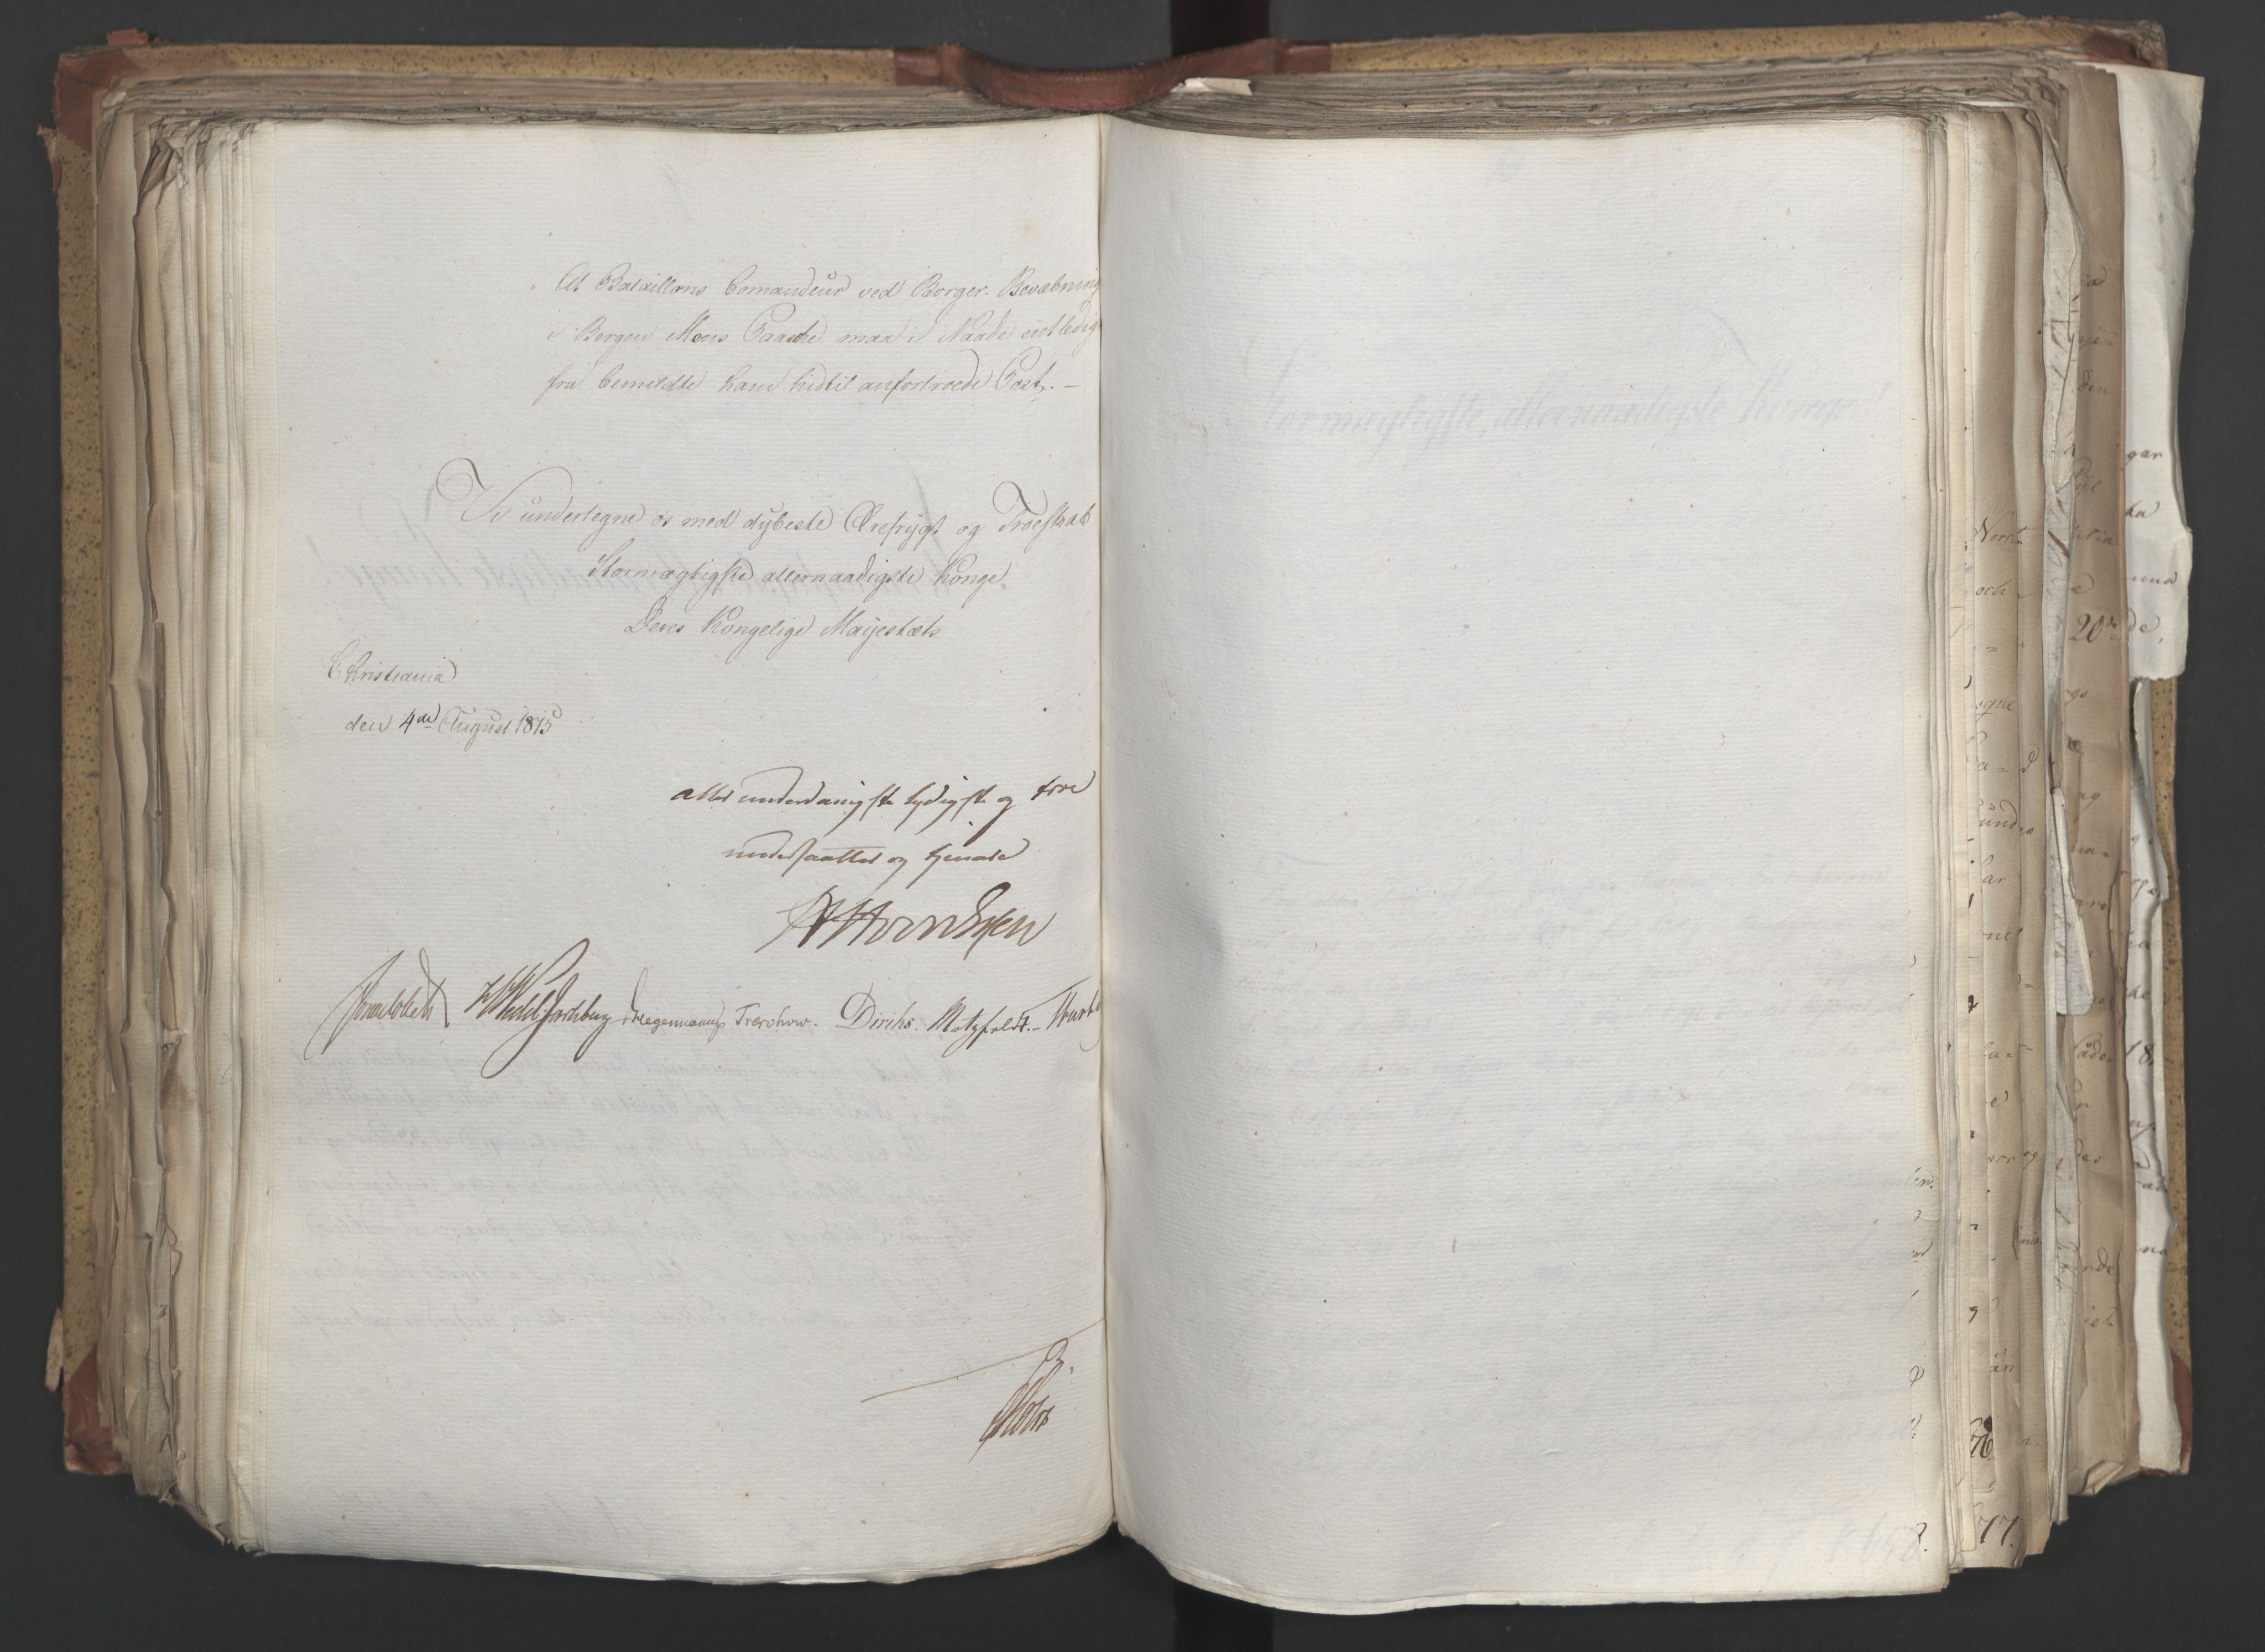 "At Bataillons Comandeur ved Borger-Bevæbning
i Bergen Mons Paaske maa i Naade entledig
fra bemeldte ham hidtil anfortroede Post. –
Vi undertegne os med dybeste Ærefrygt og Troeskab
Stormægtigste, allernaadigste Konge!
Deres Kongelige Mayestæts
Christiania
den 4de August 1815
allerunderdanigste lydigste og troe
undersaatter og tjenere
Sommerhielm HWedel Jarlsberg Hegermann Treschow. Diriks. Motzfeldt. –
Holst
76.
77.